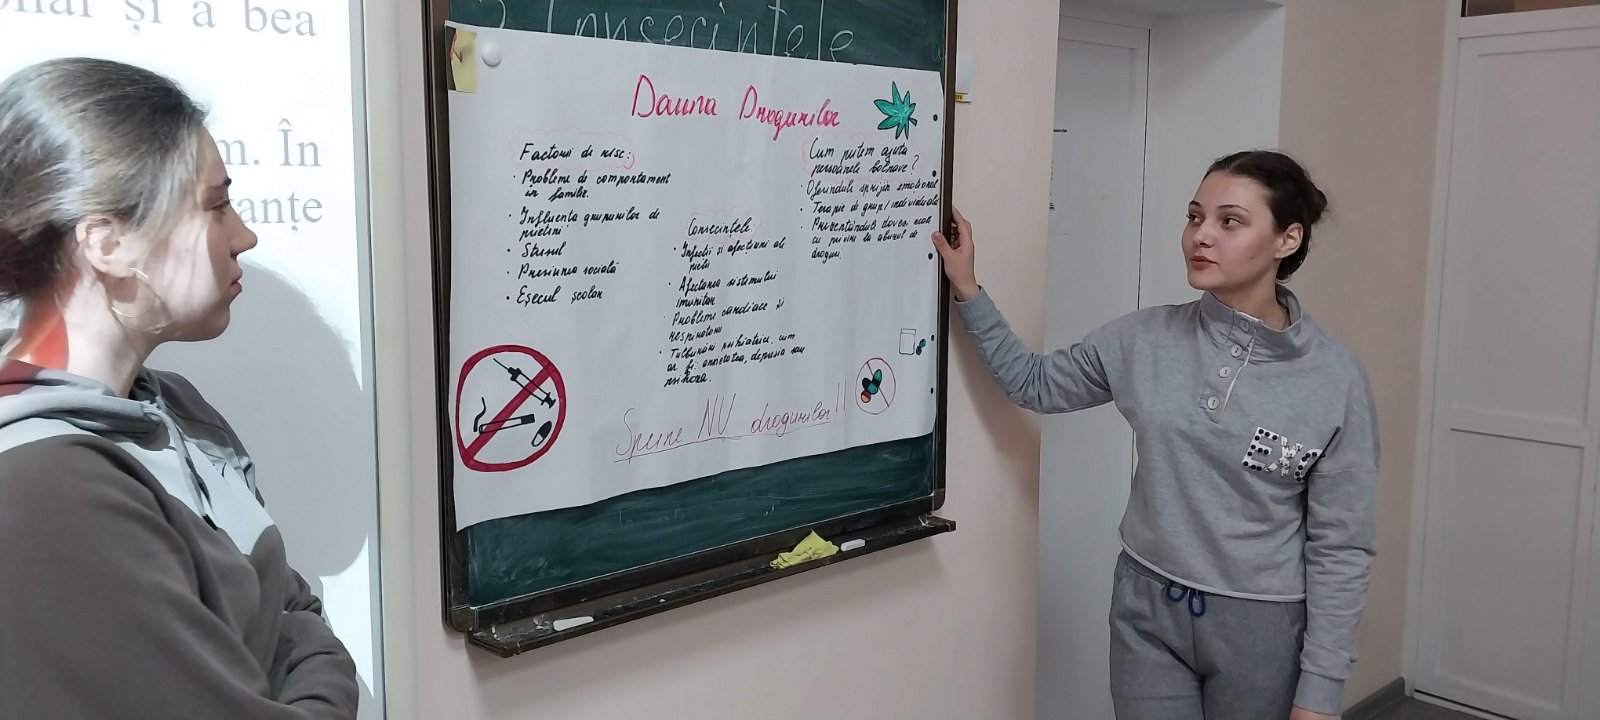 și a bea
m. În
Consecințele
Dauna Drogurilor
Factorii de risc:
• Probleme de comportament
în familie.
• Influența grupurilor de
prieteni
• Stresul
• Presiunea socială
• Eșecul școlar
Consecințele
• Infecții și afecțiuni ale
pielii
• Afectarea sistemului
imunitar
• Probleme cardiace și
respiratorii
• Tulburări psihiatrice, cum
ar fi: anxietatea, depresia sau
psihoza.
Cum putem ajuta
persoanele bolnave?
• Oferindule sprijin emoțional
• Terapie de grup/individuală
• Prezentândule dovezi reale
cu privire la abuzul de
droguri.
Spune NU drogurilor!!
EXO